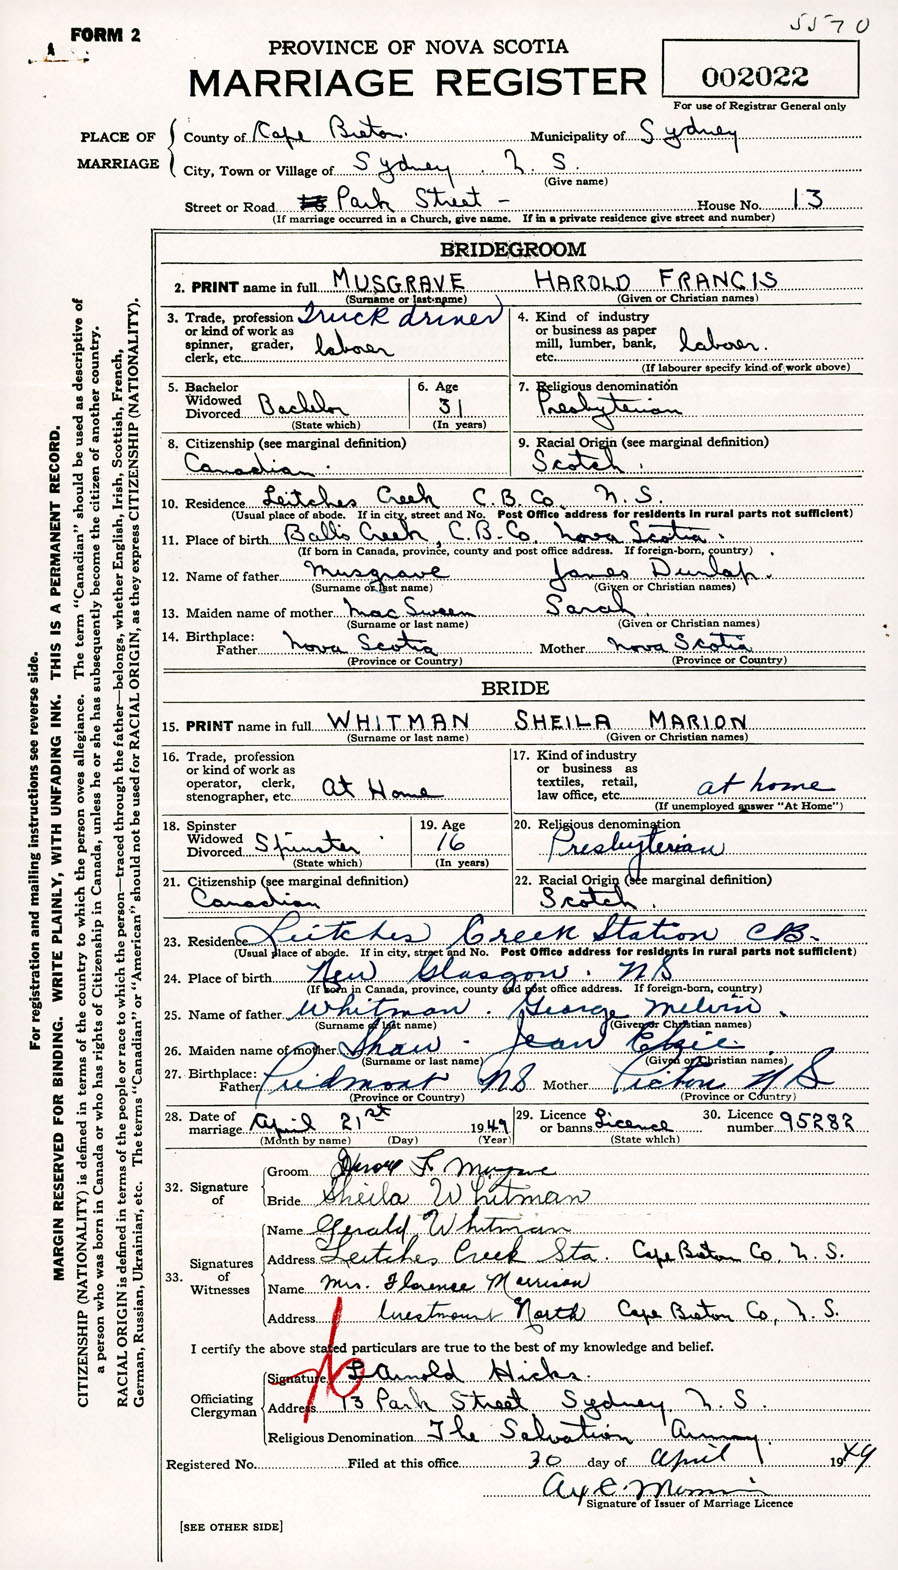 5570
FORM 2
PROVINCE OF NOVA SCOTIA
MARRIAGE REGISTER
002022
For use of Registrar General only
PLACE OF MARRIAGE
County of Cape Breton. Municipality of Sydney
City, Town or Village of Sydney. N. S.
(Give name)
Street or Road Park Street - House No. 13
(If marriage occurred in a Church, give name. If in a private residence give street and number)
BRIDEGROOM
2. PRINT name in full MUSGRAVE HAROLD FRANCIS
(Surname or last name) (Given or Christian names)
3. Trade, profession or kind of work as spinner, grader, clerk, etc. Truck driver laborer
4. Kind of industry or business as paper mill, lumber, bank, etc. laborer.
(If labourer specify kind of work above)
5. Bachelor Widowed Divorced Bachelor
(State which)
6. Age 31
(In years)
7. Religious denomination
Presbyterian
8. Citizenship (see marginal definition)
Canadian.
9. Racial Origin (see marginal definition)
Scotch.
10. Residence Leitches Creek C.B. Co. N. S.
(Usual place of abode. If in city, street and No. Post Office address for residents in rural parts not sufficient)
11. Place of birth Balls Creek, C.B. Co. Nova Scotia.
(If born in Canada, province, county and post office address. If foreign-born, country)
12. Name of father Musgrave James Dunlap.
(Surname or last name) (Given or Christian names)
13. Maiden name of mother MacSween Sarah
(Surname or last name) (Given or Christian names)
14. Birthplace: Father Nova Scotia Mother Nova Scotia
(Province or Country) (Province or Country)
BRIDE
15. PRINT name in full WHITMAN SHEILA MARION
(Surname or last name) (Given or Christian names)
16. Trade, profession or kind of work as operator, clerk, stenographer, etc. At Home
17. Kind of industry or business as textiles, retail, law office, etc. at home
(If unemployed answer "At Home")
18. Spinster Widowed Divorced Spinster
(State which)
19. Age 16
(In years)
20. Religious denomination
Presbyterian
21. Citizenship (see marginal definition)
Canadian
22. Racial Origin (see marginal definition)
Scotch.
23. Residence Leitches Creek Station CB.
(Usual place of abode. If in city, street and No. Post Office address for residents in rural parts not sufficient)
24. Place of birth New Glasgow. NS
(If born in Canada, province, county and post office address. If foreign-born, country)
25. Name of father Whitman. George Melvin.
(Surname or last name) (Given or Christian names)
26. Maiden name of mother Shaw. Jean Elsie.
(Surname or last name) (Given or Christian names)
27. Birthplace: Father Piedmont NS Mother Pictou NS
(Province or Country) (Province or Country)
28. Date of marriage April 21st 1949
(Month by name) (Day) (Year)
29. Licence or banns Licence
(State which)
30. Licence number 95282
32. Signature of
Groom Harold F. Musgrave
Bride Sheila Whitman
33. Signatures of Witnesses
Name Gerald Whitman
Address Leitches Creek Sta. Cape Breton Co, N. S.
Name Mrs. Florence Morrison
Address Westmount North Cape Breton Co, N. S.
I certify the above stated particulars are true to the best of my knowledge and belief.
Officiating Clergyman
Signature Arnold Hicks.
Address 13 Park Street Sydney N. S.
Religious Denomination The Salvation Army.
Registered No. Filed at this office 30 day of April 1949
Signature of Issuer of Marriage Licence
[SEE OTHER SIDE]
For registration and mailing instructions see reverse side.
MARGIN RESERVED FOR BINDING. WRITE PLAINLY, WITH UNFADING INK. THIS IS A PERMANENT RECORD.
CITIZENSHIP (NATIONALITY) is defined in terms of the country to which the person owes allegiance. The term "Canadian" should be used as descriptive of
a person who was born in Canada or who has rights of Citizenship in Canada, unless he or she has subsequently become the citizen of another country.
RACIAL ORIGIN is defined in terms of the people or race to which the person—traced through the father—belongs, whether English, Irish, Scottish, French,
German, Russian, Ukrainian, etc. The terms "Canadian" or "American" should not be used for RACIAL ORIGIN, as they express CITIZENSHIP (NATIONALITY).